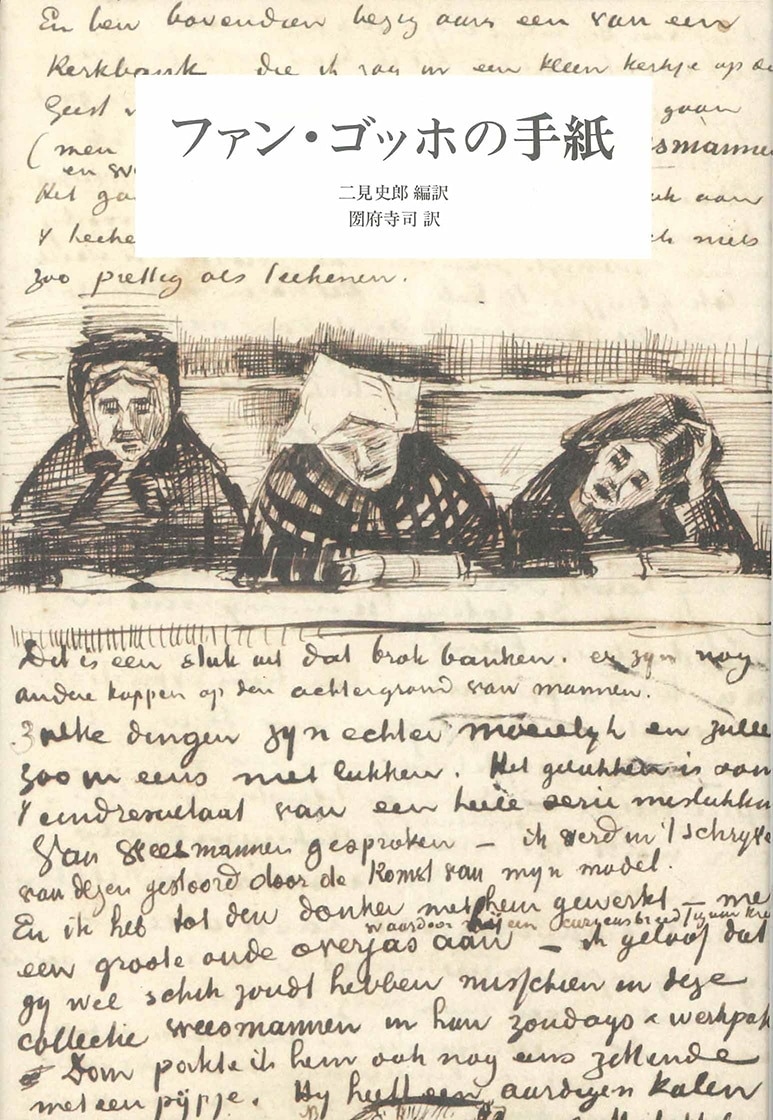 En ben bovendien bezig aan een van een
Kerkbank die ik zag in een kleen kerkje op de
Geest
gaan
ファン・ゴッホの手紙
(men
esmannen
en
二見史郎 編訳
Het
aan
圀府寺司 訳
't teeke
niets
zoo prettig als teekenen.
Dit is een stuk uit dat brok banken. er zyn nog
andere koppen op den achtergrond van mannen.
Zulke dingen zyn echter moeielyk en zulle
zoo in eens niet lukken. Het gelukken is van
't eindresultaat van een heele serie mislukkin
Van Weesmannen gesproken – ik werd in 't schryve
van dezen gestoord door de Komst van myn model.
En ik heb tot den donker met hem gewerkt – 
waardoor een
een groote oude overjas aan – ik geloof dat
gy wel schik zoudt hebben misschien in deze
collectie weesmannen in hun zondags & werkpak
Dom pakte ik hem ook nog eens zittende
met een pypje. Hy heeft een aardigen kalen